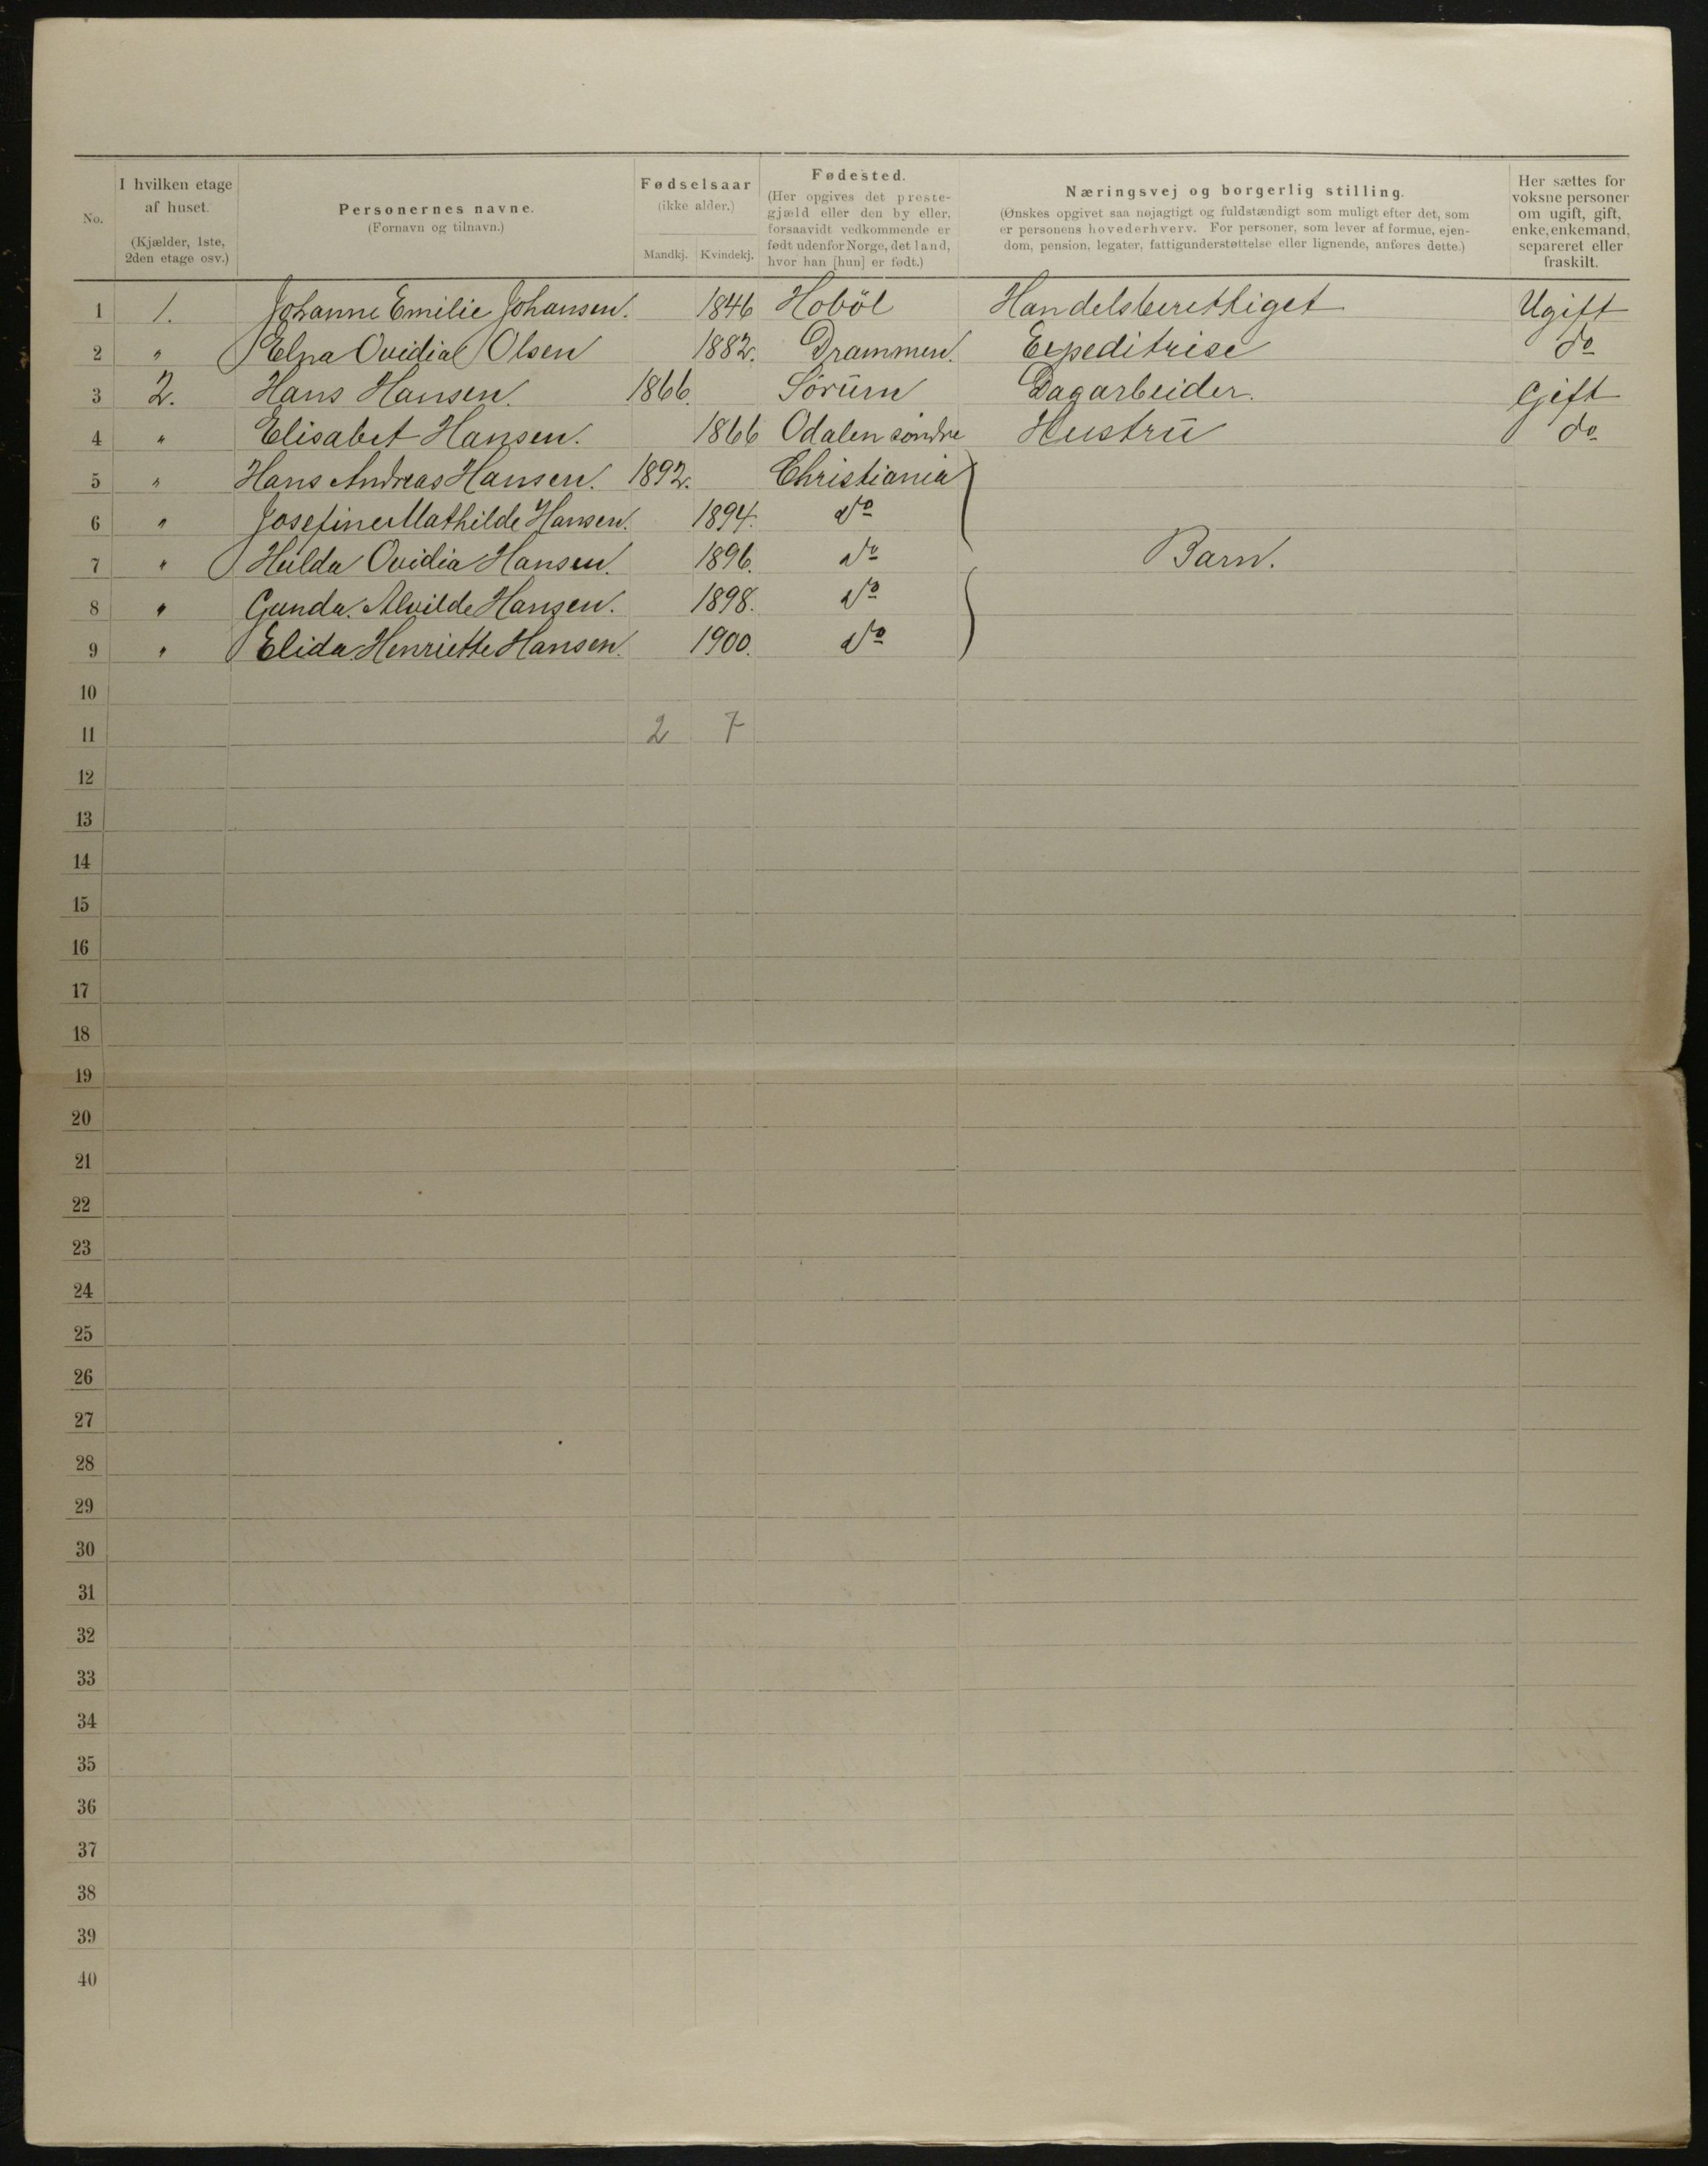 No.
I hvilken etage
af huset.
(Kjælder, 1ste,
2den etage osv.)
Personernes navne.
(Fornavn og tilnavn.)
Fødselsaar
(ikke alder.)
Mandkj. Kvindekj.
Fødested.
(Her opgives det preste-
gjæld eller den by eller,
forsaavidt vedkommende er
født udenfor Norge, det land,
hvor han [hun] er født.)
Næringsvej og borgerlig stilling.
(Ønskes opgivet saa nøjagtigt og fuldstændigt som muligt efter det, som
er personens hovederhverv. For personer, som lever af formue, ejen-
dom, pension, legater, fattigunderstøttelse eller lignende, anføres dette.)
Her sættes for
voksne personer
om ugift, gift,
enke, enkemand,
separeret eller
fraskilt.
1 1. Johanne Emilie Johansen. 1846 Hoböl Handelsberettiget Ugift
2 " Elna Ovidia Olsen 1882. Drammen. Expeditrise do
3 2. Hans Hansen. 1866. Sörum Dagarbeider. Gift
4 " Elisabet Hansen. 1866 Odalen söndre Hustru do
5 " Hans Andreas Hansen. 1892. Christiania
6 " Josefine Mathilde Hansen. 1894. do
7 " Hulda Ovidia Hansen. 1896. do Barn.
8 " Gunda. Alvilde Hansen. 1898. do
9 " Elida Henriette Hansen. 1900. do
10
11 2 7
12
13
14
15
16
17
18
19
20
21
22
23
24
25
26
27
28
29
30
31
32
33
34
35
36
37
38
39
40